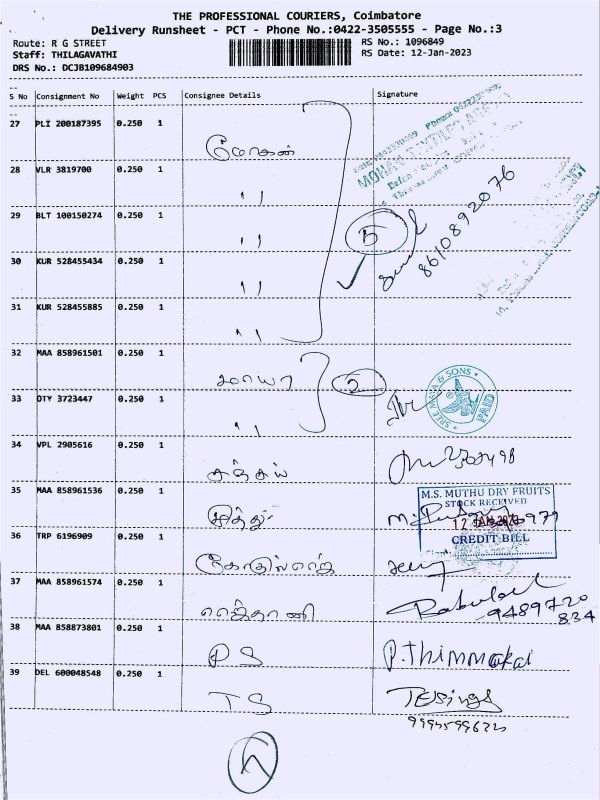 THE PROFESSIONAL COURIERS, Coimbatore
Delivery Runsheet - PCT - Phone No.:0422-3505555 - Page No.:3
Route: R G STREET RS No.: 1096849
Staff: THILAGAVATHI RS Date: 12-Jan-2023
DRS No.: DCJB109684903
S No Consignment No Weight PCS Consignee Details Signature
27 PLI 200187395 0.250 1 மோகன்
28 VLR 3819700 0.250 1 ,,
29 BLT 100150274 0.250 1 ,,
5
8610892076
30 KUR 528455434 0.250 1 ,,
31 KUR 528455885 0.250 1 ,,
32 MAA 858961501 0.250 1
2
SREE & SONS
PAID
33 OTY 3723447 0.250 1 ,,
34 VPL 2905616 0.250 1
35 MAA 858961536 0.250 1 முத்து
M.S. MUTHU DRY FRUITS
STOCK RECEIVED
12 JAN 2023
CREDIT BILL
36 TRP 6196909 0.250 1
37 MAA 858961574 0.250 1
9489720
834
38 MAA 858873801 0.250 1 PS P.Thimmakai
39 DEL 600048548 0.250 1 TS